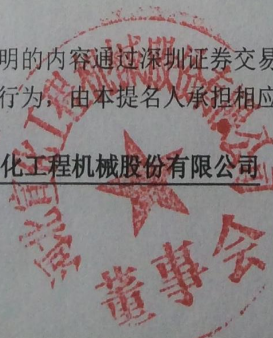 明的内容通过深圳证券交易
行为，由本提名人承担相应
化工程机械股份有限公司
河北宣化工程机械股份有限公司
董事会